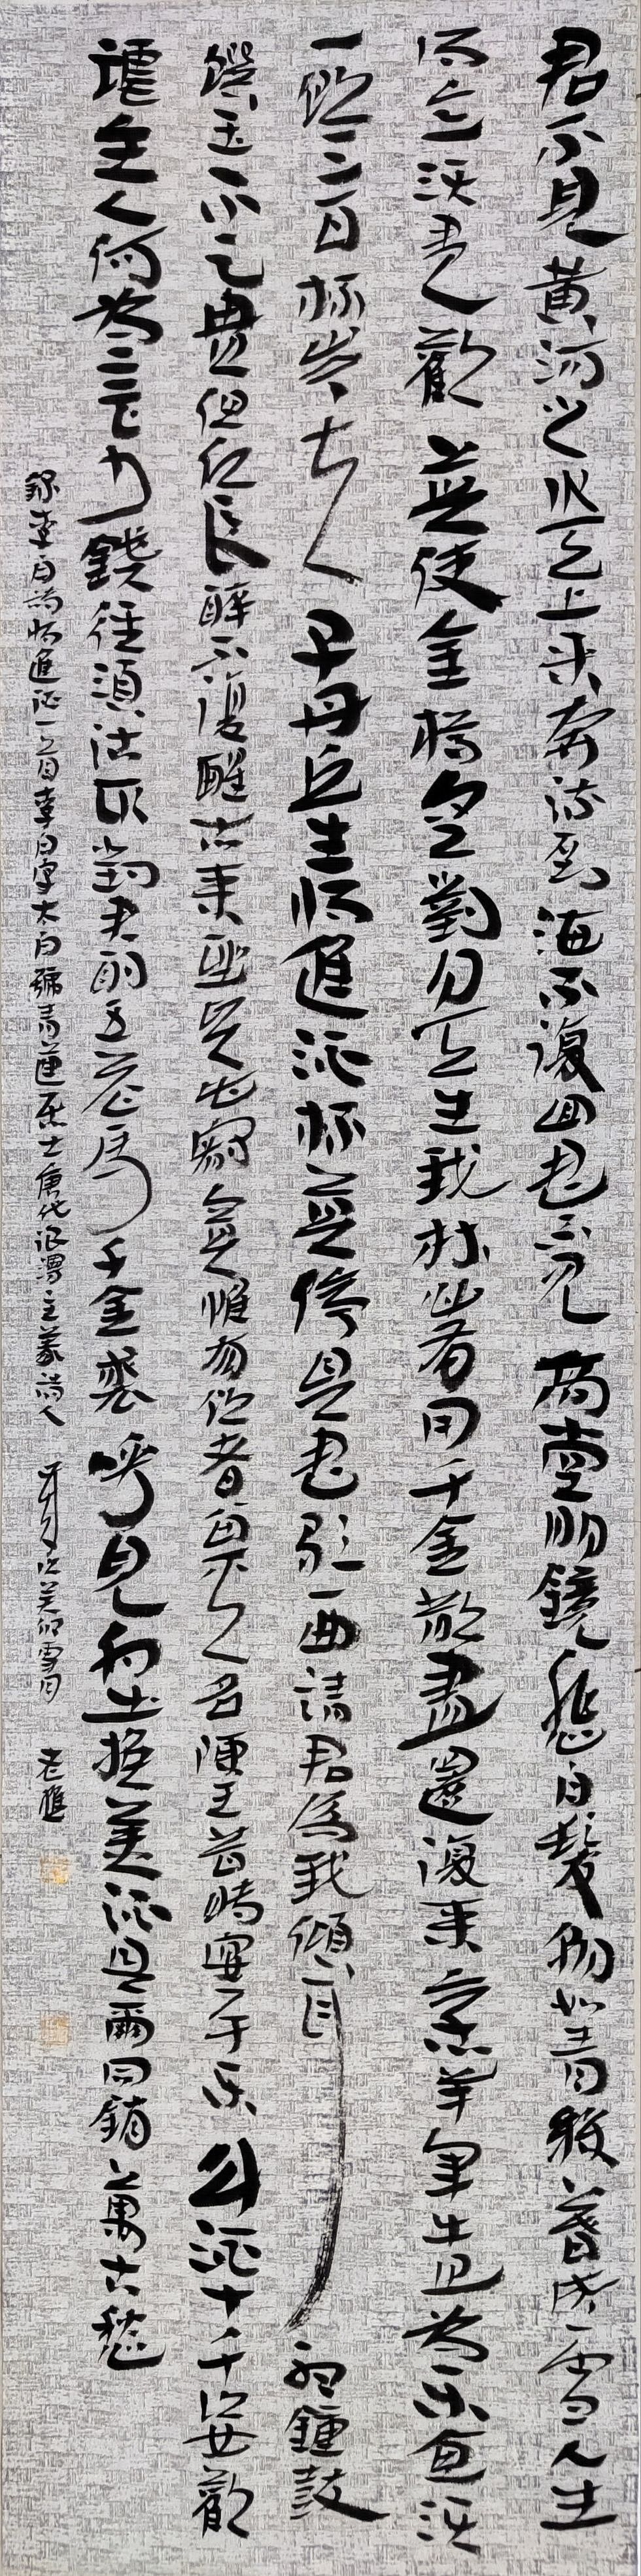 君不見黃河之水天上来奔流到海不復回君不見高堂明鏡悲白髮朝如青絲暮成雪人生
得意須盡歡莫使金樽空對月天生我材必有用千金散盡還復来烹羊宰牛且為樂會須
一飲三百杯岑夫子丹丘生將進酒杯莫停與君歌一曲請君為我傾耳聽鐘鼓
饌玉不足貴但願長醉不復醒古来聖賢皆寂寞惟有飲者留其名陳王昔時宴平樂斗酒十千恣歡
謔主人何為言少錢徑須沽取對君酌五花馬千金裘呼兒將出換美酒與爾同銷萬古愁
錄李白詩將進酒一首李白字太白號青蓮居士唐代浪漫主義詩人 癸卯雪月 老樵